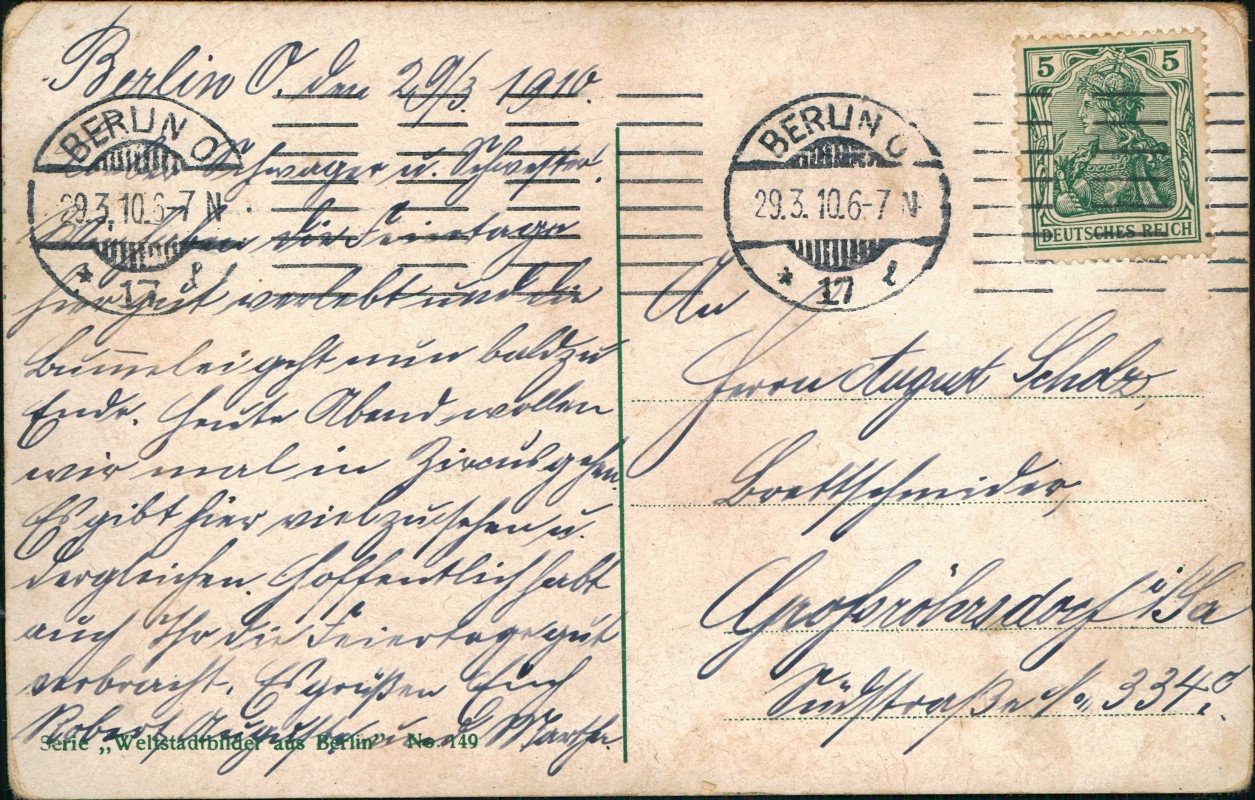 Berlin O. den 29/3. 1910.
Schwager u. Schwester.
Wir haben die Feiertage
hier gut verlebt und die
Bummelei geht nun bald zu
Ende. Heute Abend wollen
wir mal in Zirkus gehen.
Es gibt hier viel zu sehen u.
dergleichen. Hoffentlich habt
auch Ihr die Feiertage gut
verbracht. Es grüßen Euch
Robert, Auguste und Martha.
Serie „Weltstadtbilder aus Berlin" No. 149
BERLIN O
29.3.10.6-7 N
* 17 l
BERLIN O
29.3.10.6-7 N
* 17 l
5 5
DEUTSCHES REICH
An
Herrn August Scholz,
Brettschneider,
Großröhrsdorf i/Sa
Südstraße No 334